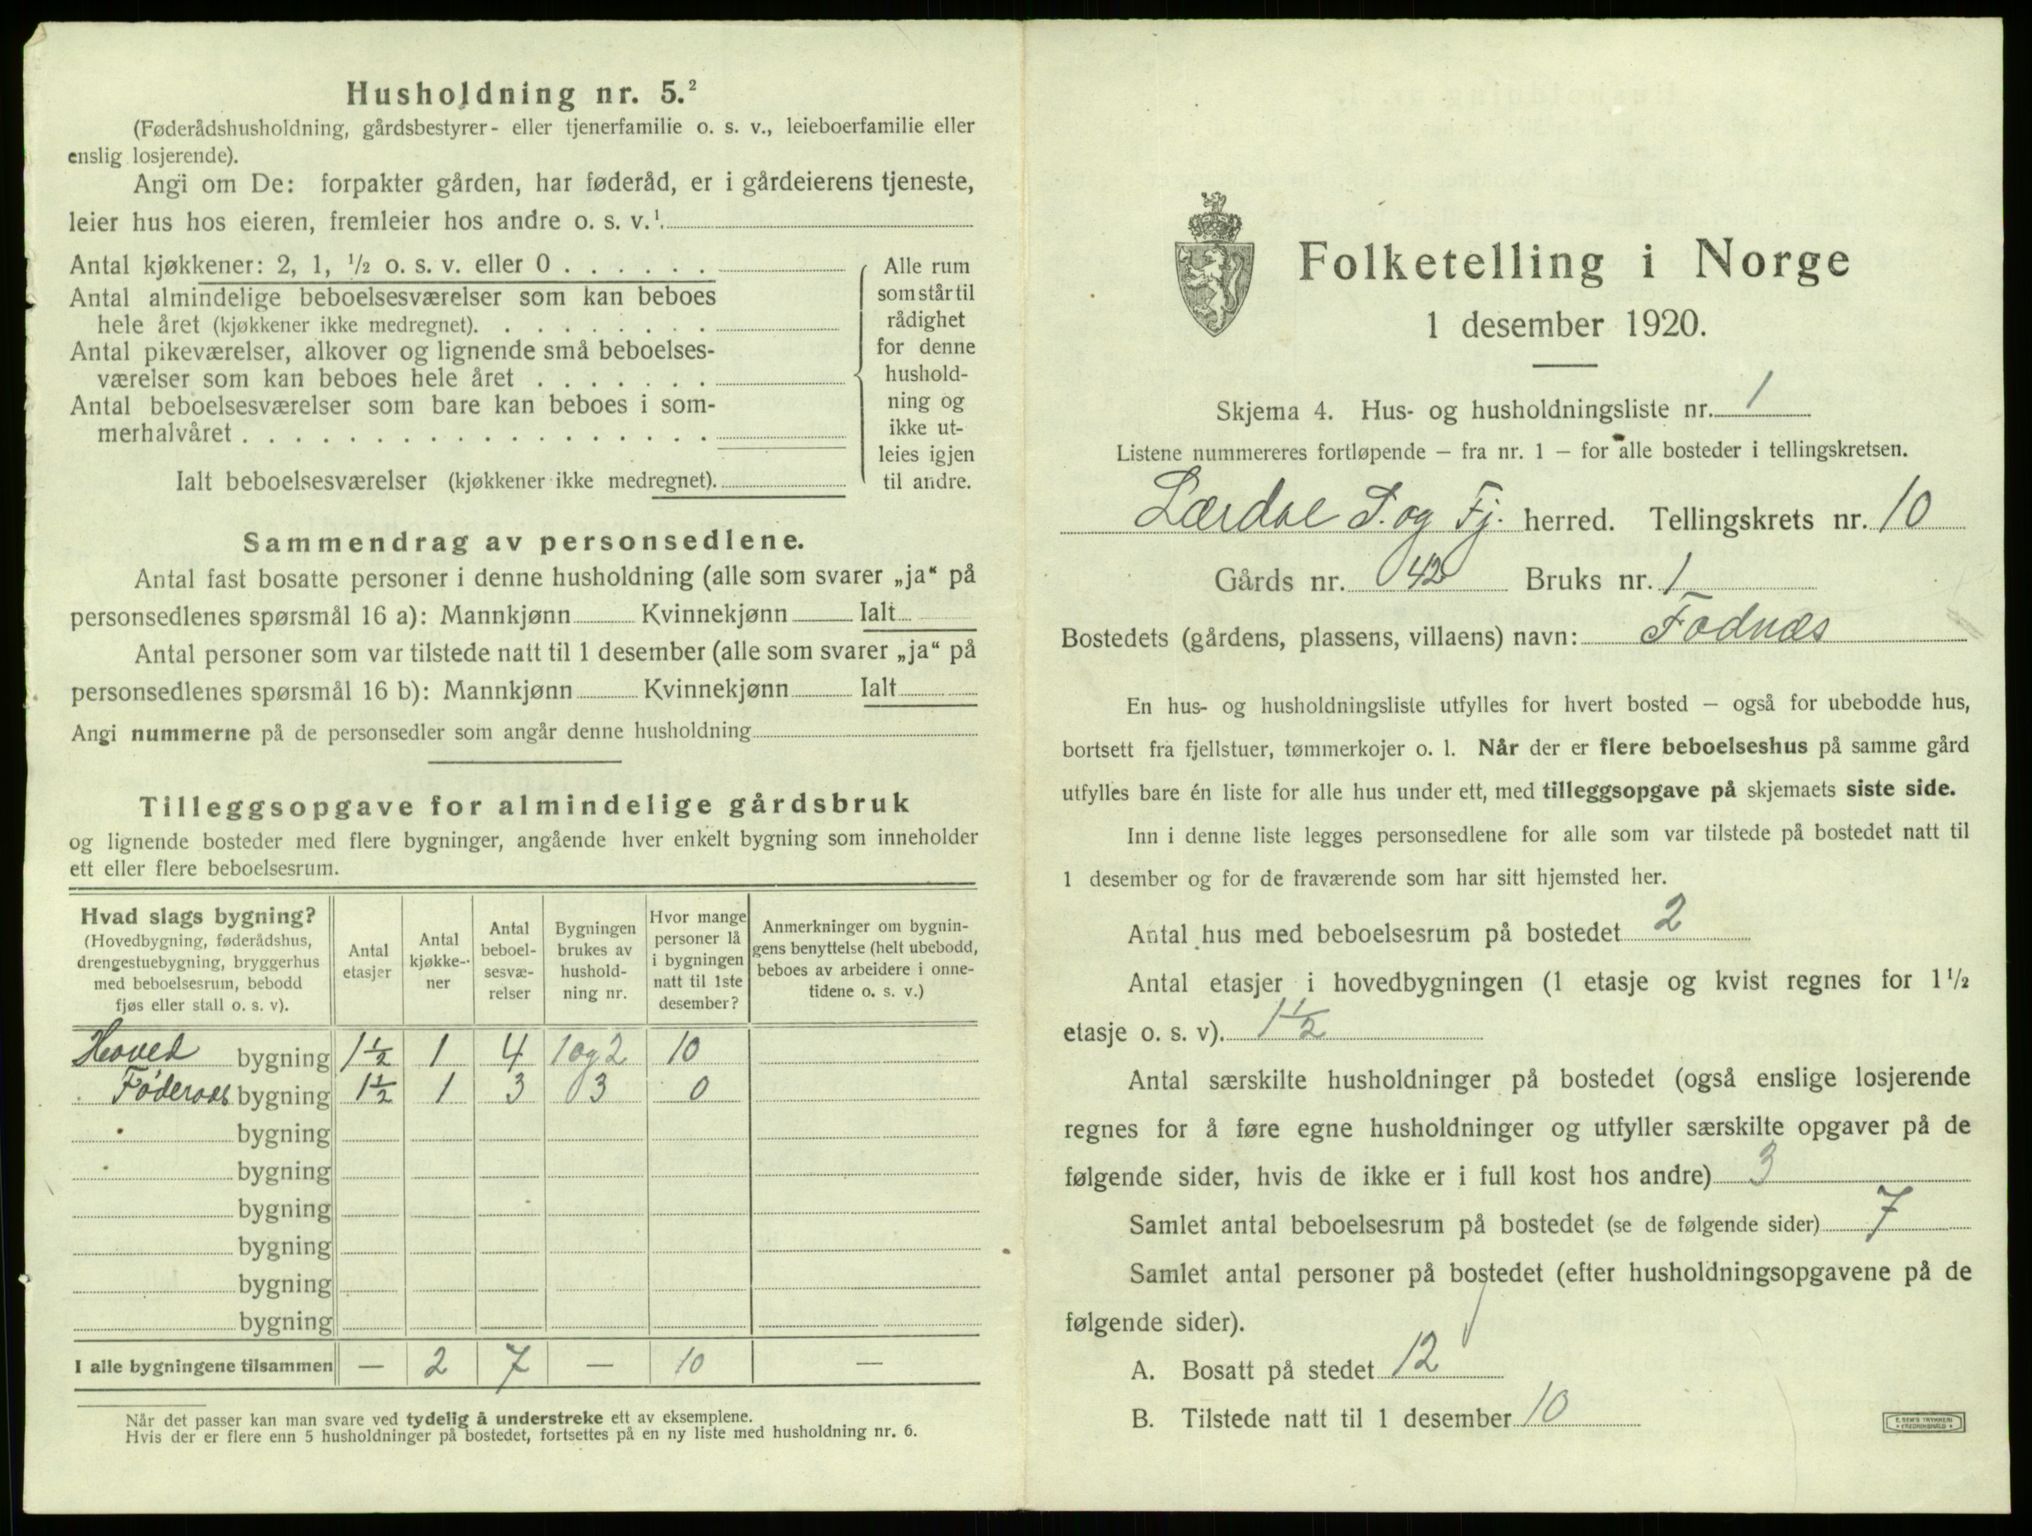 Husholdning nr. 5.²
(Føderådshusholdning, gårdsbestyrer- eller tjenerfamilie o. s. v., leieboerfamilie eller
enslig losjerende).
Angi om De: forpakter gården, har føderåd, er i gårdeierens tjeneste,
leier hus hos eieren, fremleier hos andre o. s. v.¹.
Antal kjøkkener: 2, 1, ¹/₂ o. s. v. eller 0 . . . . . .
Antal almindelige beboelsesværelser som kan beboes
hele året (kjøkkener ikke medregnet). . . . . . . . .
Antal pikeværelser, alkover og lignende små beboelses-
værelser som kan beboes hele året . . . . . . .
Antal beboelsesværelser som bare kan beboes i som-
merhalvåret . . . . . . . . . . . . . . . . . .
Ialt beboelsesværelser (kjøkkener ikke medregnet).
Alle rum
som står til
rådighet
for denne
hushold-
ning og
ikke ut-
leies igjen
til andre.
Sammendrag av personsedlene.
Antal fast bosatte personer i denne husholdning (alle som svarer „ja“ på
personsedlenes spørsmål 16 a): Mannkjønn Kvinnekjønn Ialt
Antal personer som var tilstede natt til 1 desember (alle som svarer „ja“ på
personsedlenes spørsmål 16 b): Mannkjønn Kvinnekjønn Ialt
Angi nummerne på de personsedler som angår denne husholdning
Tilleggsopgave for almindelige gårdsbruk
og lignende bosteder med flere bygninger, angående hver enkelt bygning som inneholder
ett eller flere beboelsesrum.
Hvad slags bygning?
(Hovedbygning, føderådshus,
drengestuebygning, bryggerhus
med beboelsesrum, bebodd
fjøs eller stall o. s. v).
Antal
etasjer
Antal
kjøkke-
ner
Antal
beboel-
sesvæ-
relser
Bygningen
brukes av
hushold-
ning nr.
Hvor mange
personer lå
i bygningen
natt til 1ste
desember?
Anmerkninger om bygnin-
gens benyttelse (helt ubebodd,
beboes av arbeidere i onne-
tidene o. s. v.)
Hoved bygning 1½ 1 4 1 og 2 10
Føderaas bygning 1½ 1 3 3 0
bygning
bygning
bygning
bygning
bygning
bygning
I alle bygningene tilsammen — 2 7 — 10 —
Når det passer kan man svare ved tydelig å understreke ett av eksemplene.
Hvis der er flere enn 5 husholdninger på bostedet, fortsettes på en ny liste med husholdning nr. 6.
Folketelling i Norge
1 desember 1920.
Skjema 4. Hus- og husholdningsliste nr. 1
Listene nummereres fortløpende – fra nr. 1 – for alle bosteder i tellingskretsen.
Lærdal S. og Fj. herred. Tellingskrets nr. 10
Gårds nr. 42 Bruks nr. 1
Bostedets (gårdens, plassens, villaens) navn: Fodnæs
En hus- og husholdningsliste utfylles for hvert bosted – også for ubebodde hus,
bortsett fra fjellstuer, tømmerkojer o. l. Når der er flere beboelseshus på samme gård
utfylles bare én liste for alle hus under ett, med tilleggsopgave på skjemaets siste side.
Inn i denne liste legges personsedlene for alle som var tilstede på bostedet natt til
1 desember og for de fraværende som har sitt hjemsted her.
Antal hus med beboelsesrum på bostedet 2
Antal etasjer i hovedbygningen (1 etasje og kvist regnes for 1¹/₂
etasje o. s. v). 1½
Antal særskilte husholdninger på bostedet (også enslige losjerende
regnes for å føre egne husholdninger og utfyller særskilte opgaver på de
følgende sider, hvis de ikke er i full kost hos andre) 3
Samlet antal beboelsesrum på bostedet (se de følgende sider) 7
Samlet antal personer på bostedet (efter husholdningsopgavene på de
følgende sider).
A. Bosatt på stedet 12
B. Tilstede natt til 1 desember 10
E. SEM'S TRYKKERI
FREDRIKSHALD